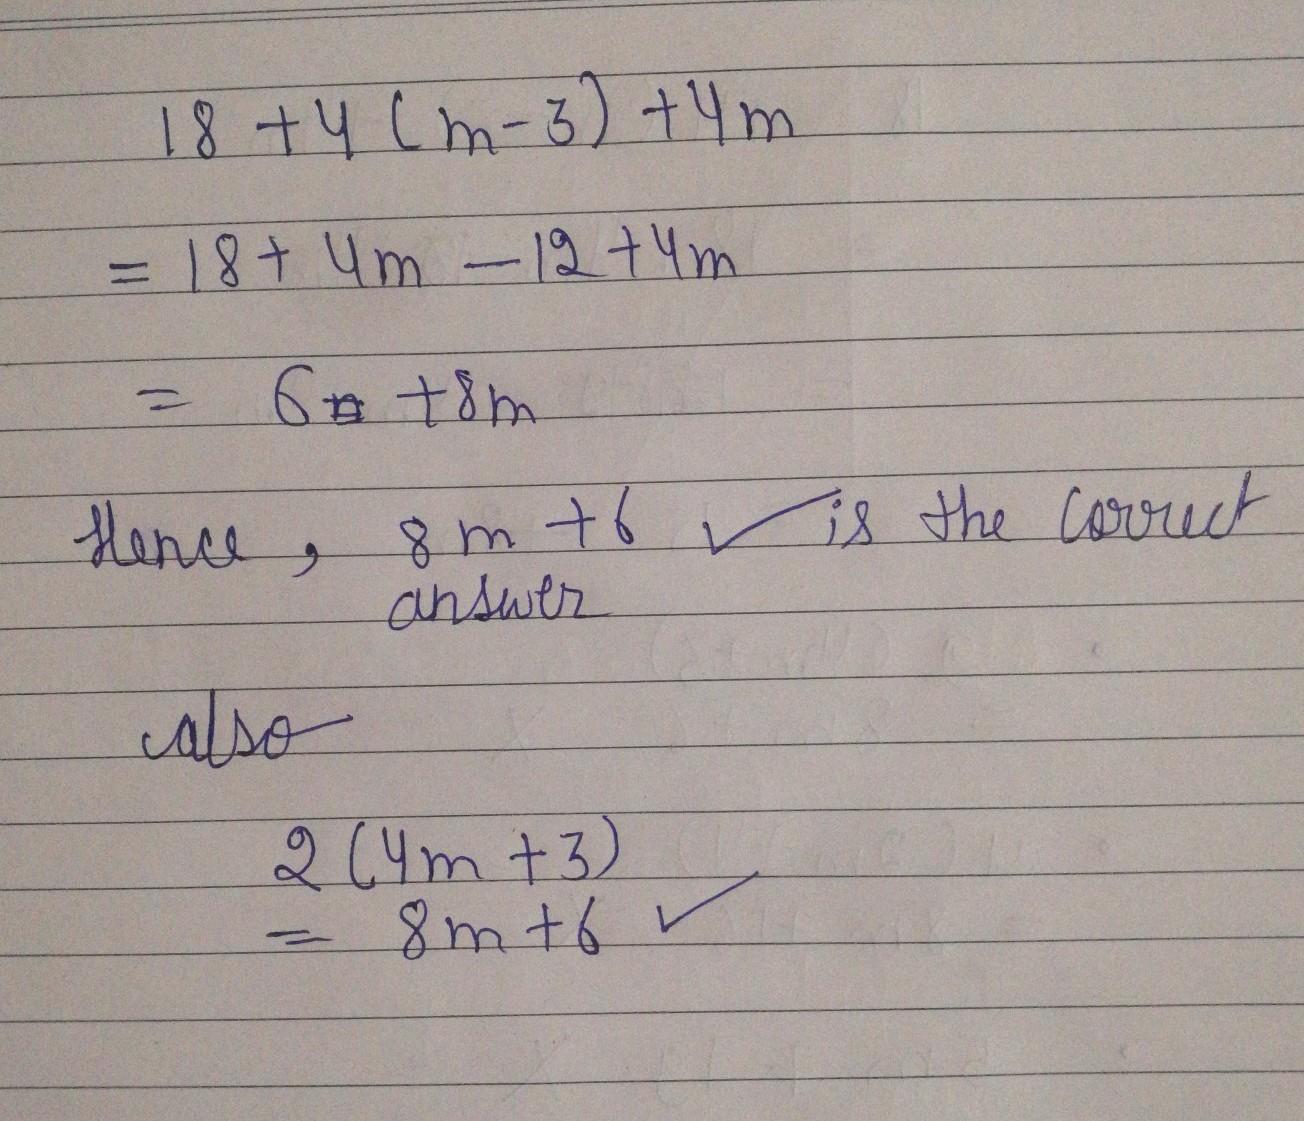 18 + 4 ( m - 3 ) + 4m
= 18 + 4m - 12 + 4m
= 6 + 8m
Hence , 8m + 6 ✓ is the correct
answer
also
2 ( 4m + 3 )
= 8m + 6 ✓